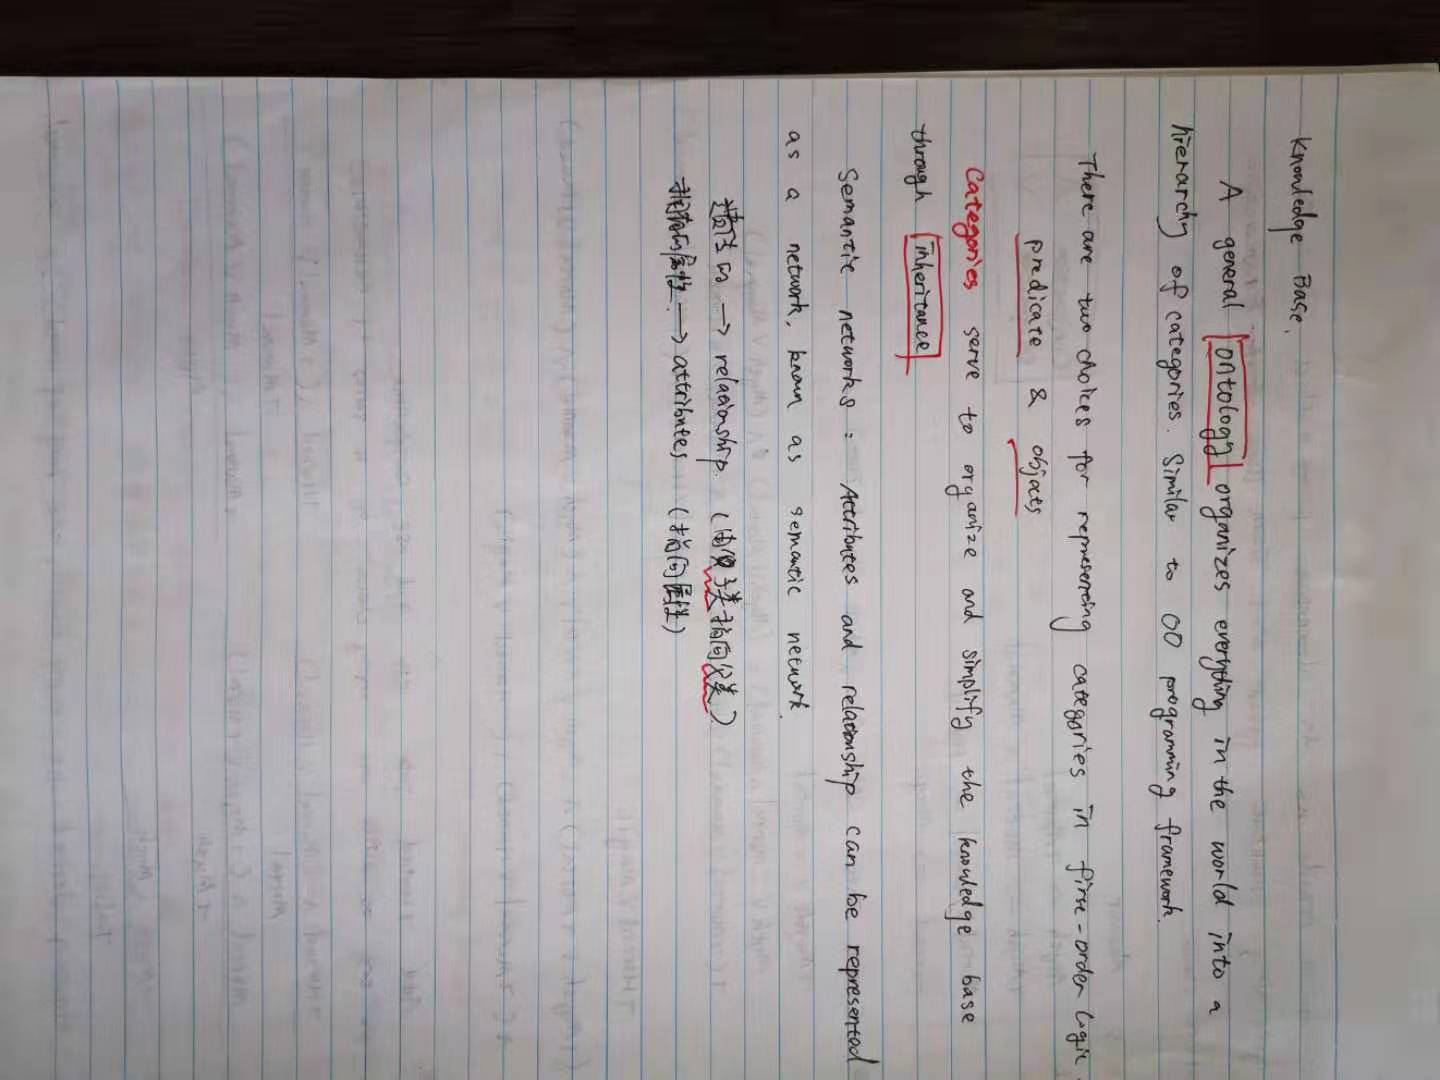 Knowledge Base.
A general ontology organizes everything in the world into a
hierarchy of categories. Similar to OO programming framework.
There are two choices for representing categories in first-order logic.
predicate & objects
Categories serve to organize and simplify the knowledge base
through inheritance
Semantic networks: Attributes and relationship can be represented
as a network, known as semantic network.
横述的 → relationship. (由子类指向父类)
→ attributes (指向属性)